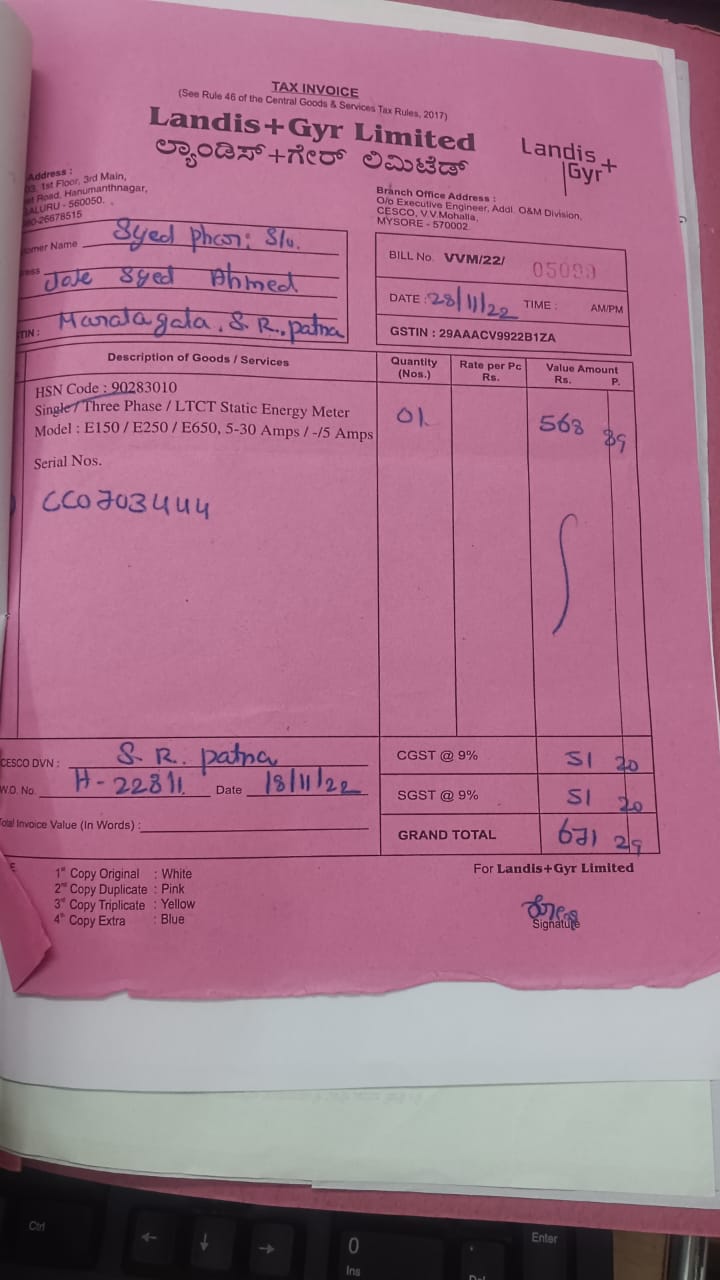 TAX INVOICE
(See Rule 46 of the Central Goods & Services Tax Rules, 2017)
Landis+Gyr Limited
ಲ್ಯಾಂಡಿಸ್+ಗೇರ್ ಲಿಮಿಟೆಡ್
Landis+
Gyr
Address :
1st Floor, 3rd Main,
Road, Hanumanthnagar,
ALURU - 560050.
26678515
Branch Office Address :
O/o Executive Engineer, Addl. O&M Division,
CESCO, V.V.Mohalla,
MYSORE - 570002.
omer Name Syed S/o.
ess Jate Syed Ahmed
TIN : Maralagala, S. R. patna
BILL No. VVM/22/
DATE : 28/11/22 TIME : AM/PM
GSTIN : 29AAACV9922B1ZA
Description of Goods / Services
Quantity (Nos.)
Rate per Pc Rs.
Value Amount Rs. P.
HSN Code : 90283010
Single / Three Phase / LTCT Static Energy Meter
Model : E150 / E250 / E650, 5-30 Amps / -/5 Amps
01
568 89
Serial Nos.
CC0703444
CESCO DVN : S. R. patna
W.O. No. H-22811 Date 18/11/22
Total Invoice Value (In Words) :
CGST @ 9% 51 20
SGST @ 9% 51 20
GRAND TOTAL 671 29
1st Copy Original : White
2nd Copy Duplicate : Pink
3rd Copy Triplicate : Yellow
4th Copy Extra : Blue
For Landis+Gyr Limited
Signature
Ctrl
0
Ins
Enter